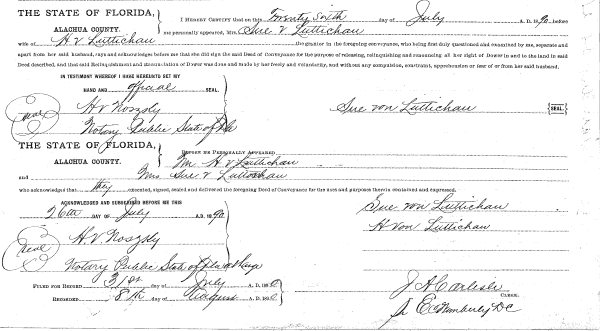 THE STATE OF FLORIDA,
ALACHUA COUNTY.
I HEREBY CERTIFY that on this Twenty Sixth day of July A. D. 1890 before
me personally appeared, Mrs. Sue v Luttichau
wife of H v Luttichau the grantor in the foregoing conveyance, who being first duly questioned and examined by me, separate and
apart from her said husband, says and acknowledges before me that she did sign the said Deed of Conveyance for the purpose of releasing, relinquishing and renouncing all her right of Dower in and to the land in said
Deed described, and that said Relinquishment and Renunciation of Dower was done and made by her freely and voluntarily, and without any compulsion, constraint, apprehension or fear of or from her said husband.
IN TESTIMONY WHEREOF I HAVE HEREUNTO SET MY
HAND AND official SEAL.
Seal
H v Noszky
Notary Public State of Fla
Sue von Luttichau
SEAL
THE STATE OF FLORIDA,
ALACHUA COUNTY.
BEFORE ME PERSONALLY APPEARED
Mr H v Luttichau
and Mrs Sue v Luttichau
who acknowledges that they executed, signed, sealed and delivered the foregoing Deed of Conveyance for the uses and purposes therein contained and expressed.
ACKNOWLEDGED AND SUBSCRIBED BEFORE ME THIS
26th DAY OF July A. D. 1890
Seal
H. v. Noszky
Notary Public State of Fla at Large
Sue von Luttichau
H von Luttichau
FILED FOR RECORD 31st day of July A. D. 1890
RECORDED 8th day of August 1890
J A Carlisle
CLERK.
E C Wimberly DC